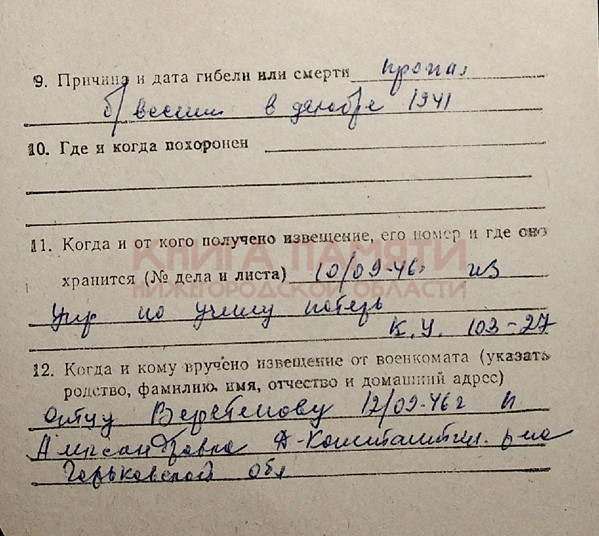 9. Причина и дата гибели или смерти пропал
б/вести в декабре 1941
10. Где и когда похоронен
11. Когда и от кого получено извещение, его номер и где оно
КНИГА ПАМЯТИ
хранится (№ дела и листа) 10/09-46г из
НИЖЕГОРОДСКОЙ ОБЛАСТИ
Упр по учету потерь
К.У. 103-27
12. Когда и кому вручено извещение от военкомата (указать
родство, фамилию, имя, отчество и домашний адрес)
отцу 12/09-46г п
Александровка Д-Константин. р-на
Горьковской обл